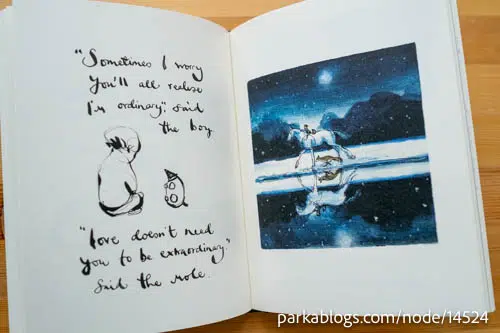 "Sometimes I worry
you'll all realise
I'm ordinary," said
the boy
"Love doesn't need
you to be extraordinary."
said the mole.
parkablogs.com/node/14524